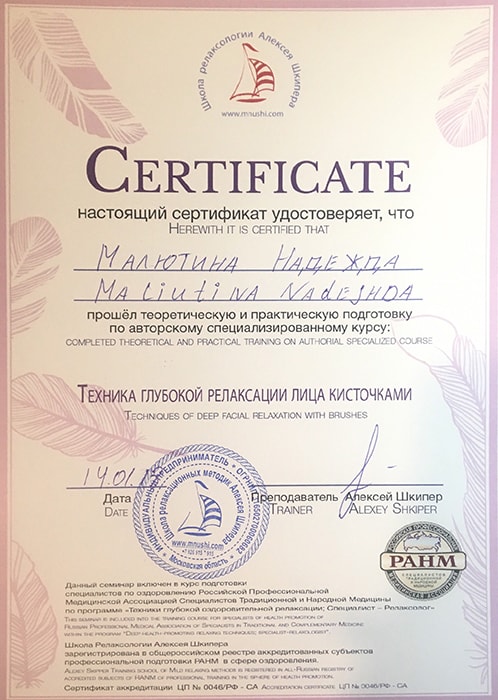 Школа релаксологии Алексея Шкипера
www.mnushi.com
CERTIFICATE
настоящий сертификат удостоверяет, что
HEREWITH IT IS CERTIFIED THAT
МАЛЮТИНА НАДЕЖДА
Maliutina Nadeshda
прошёл теоретическую и практическую подготовку
по авторскому специализированному курсу:
COMPLETED THEORETICAL AND PRACTICAL TRAINING ON AUTHORIAL SPECIALIZED COURSE
ТЕХНИКА ГЛУБОКОЙ РЕЛАКСАЦИИ ЛИЦА КИСТОЧКАМИ
TECHNIQUES OF DEEP FACIAL RELAXATION WITH BRUSHES
14.01.
ИНДИВИДУАЛЬНЫЙ ПРЕДПРИНИМАТЕЛЬ
Школа релаксационных методик Алексея Шкипера
www.mnushi.com
Московская область
Дата
DATE
Преподаватель Алексей Шкипер
TRAINER ALEXEY SHKIPER
РАНМ
Данный семинар включен в курс подготовки
специалистов по оздоровлению Российской Профессиональной
Медицинской Ассоциацией Специалистов Традиционной и Народной Медицины
по программе «Техники глубокой оздоровительной релаксации; Специалист – Релаксолог»
THIS SEMINAR IS INCLUDED INTO THE TRAINING COURSE FOR SPECIALISTS OF HEALTH PROMOTION OF
RUSSIAN PROFESSIONAL MEDICAL ASSOCIATION OF SPECIALISTS IN TRADITIONAL AND COMPLEMENTARY MEDICINE
WITHIN THE PROGRAMM "DEEP HEALTH-PROMOTING RELAXING TECHNIQUES; SPECIALIST-RELAXOLOGIST".
Школа Релаксологии Алексея Шкипера
зарегистрирована в общероссийском реестре аккредитованных субъектов
профессиональной подготовки РАНМ в сфере оздоровления.
ALEXEY SHKIPER TRAINING SCHOOL OF MILD RELAXING METHODS IS REGISTERED IN ALL-RUSSIAN REGISTRY OF
ACCREDITED SUBJECTS OF RANM OF PROFESSIONAL TRAINING IN THE SPHERE OF HEALTH PROMOTION.
Сертификат аккредитации ЦП № 0046/РФ - СА ACCREDITATION CERTIFICATE ЦП № 0046/РФ - СА